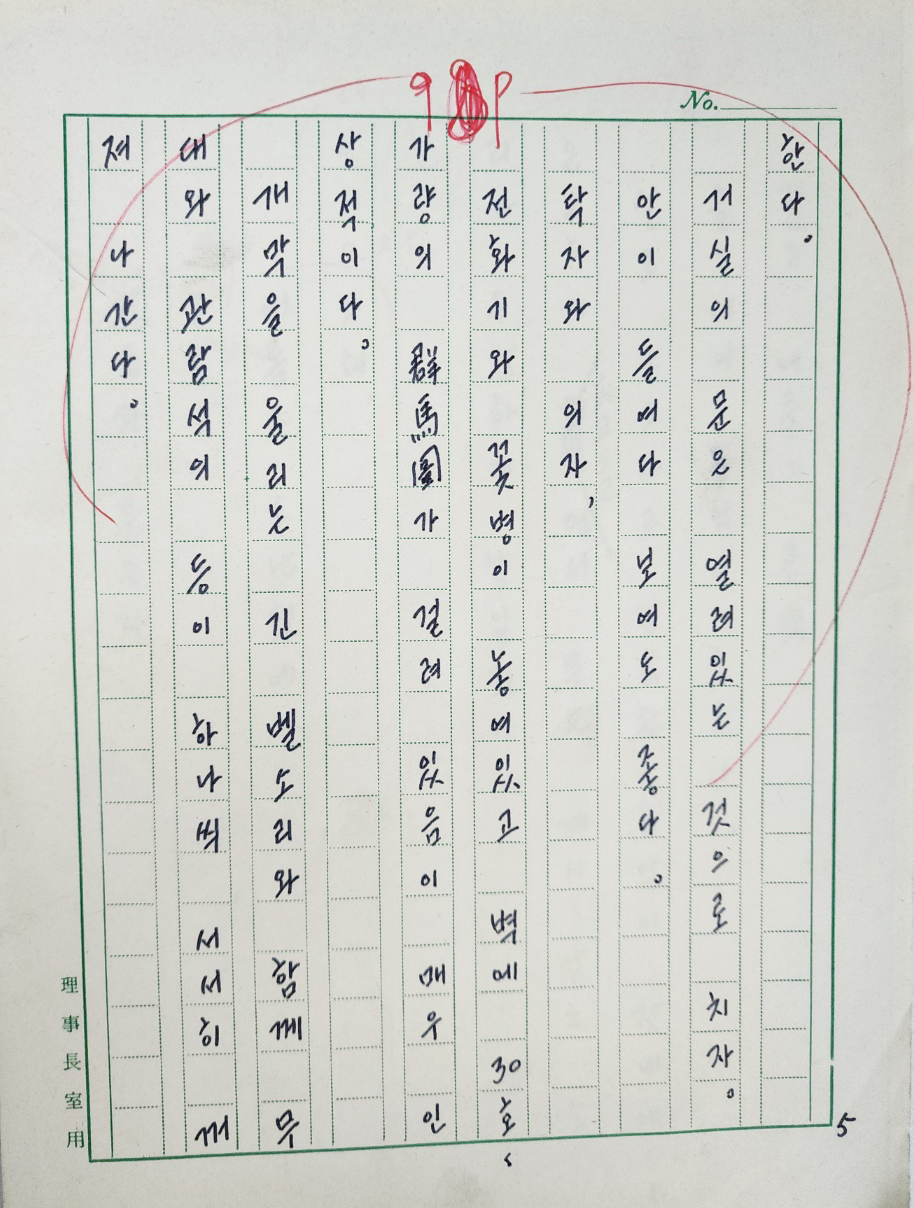 9 P
No.
한다。
서실의 문은 열려 있는 것으로 치자。
안이 들여다 보여도 좋다。
탁자와 의자,
전화기와 꽃병이 놓여있고 벽에 30호
가량의 群馬圖가 걸려 있음이 매우 인
상적이다。
개막을 울리는 긴 벨소리와 함께 무
대와 관람석의 등이 하나씩 서서히 꺼
져 나간다。
理事長室用
5